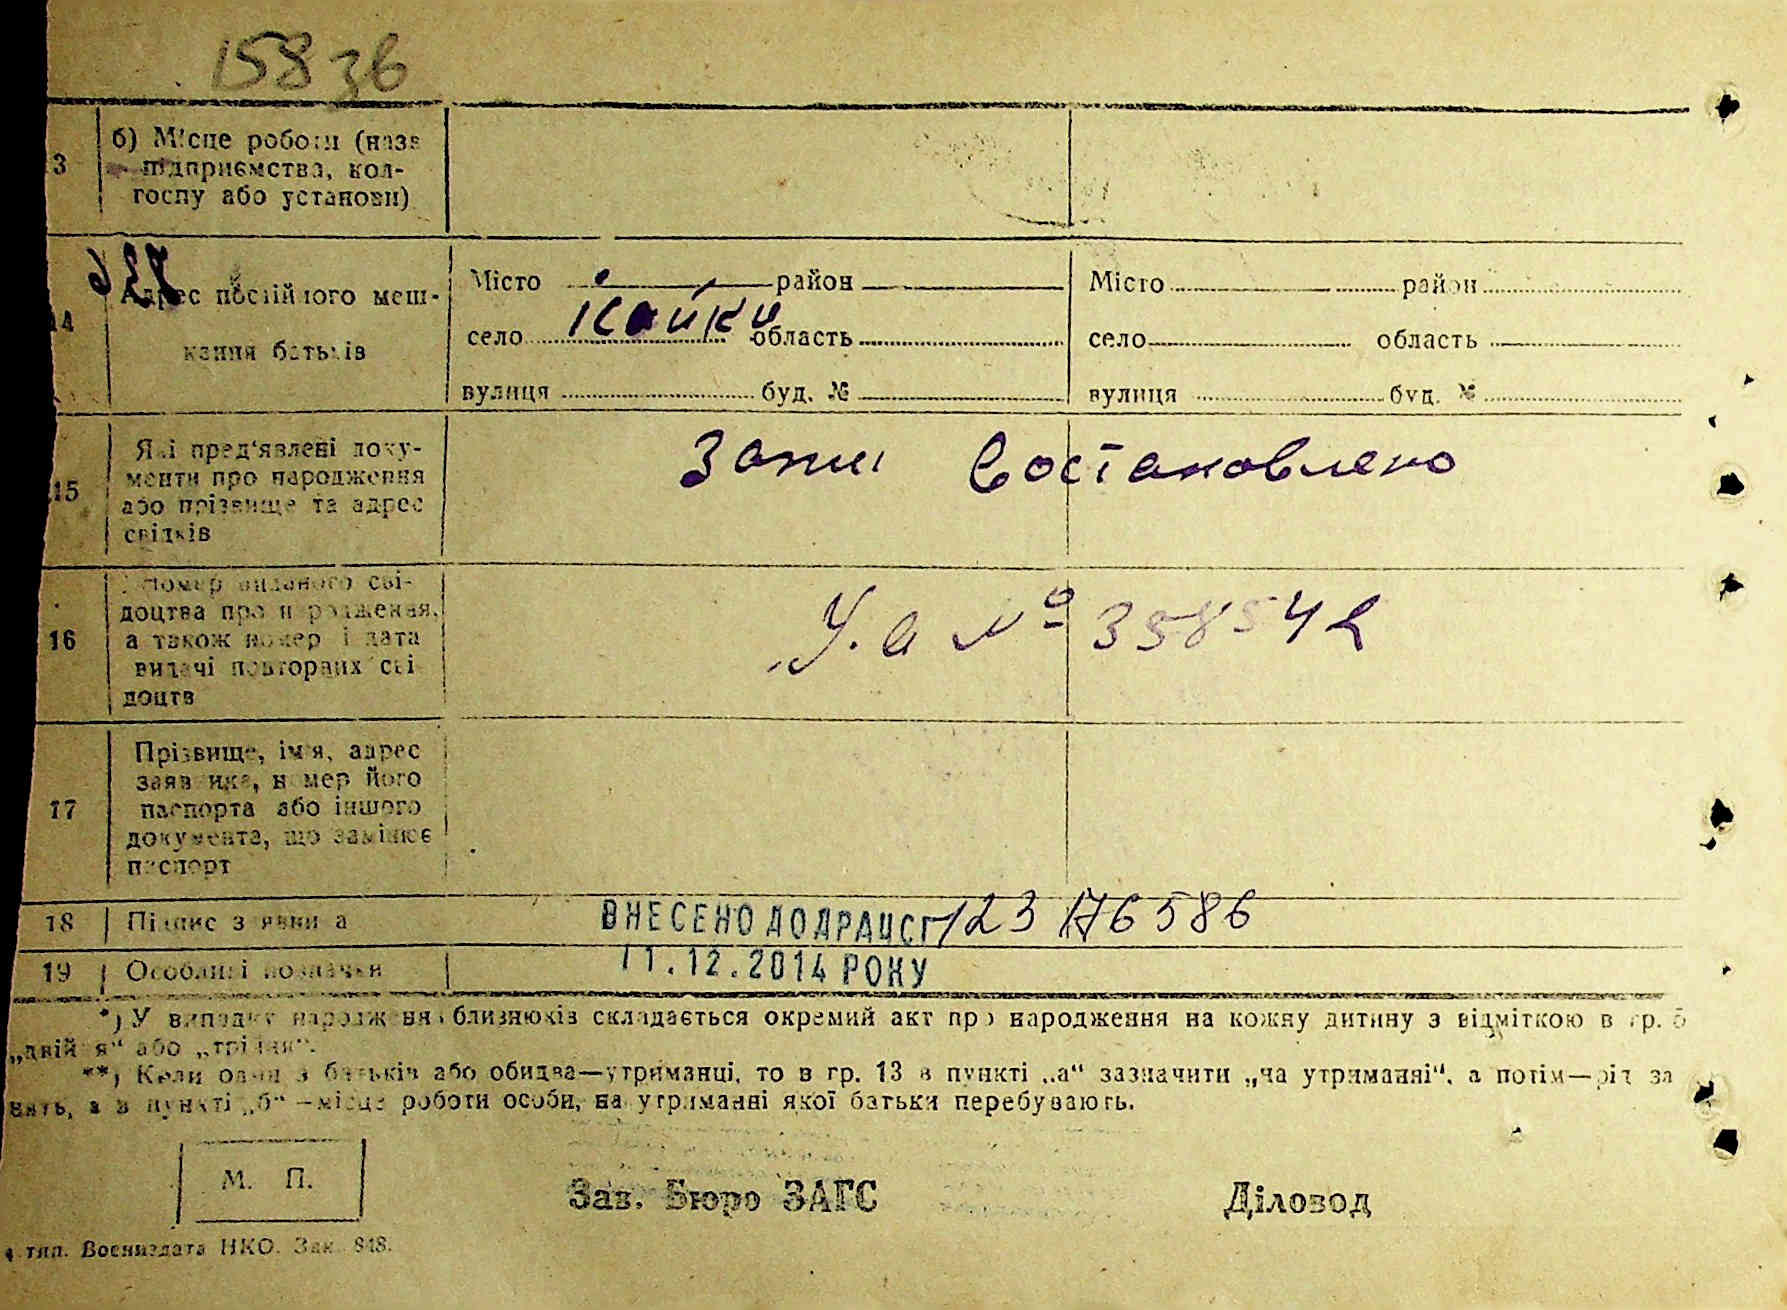 158 зв
3
б) Місце роботи (назв
підприємства, кол-
госпу або установи)
14
Адрес постійного меш-
кання батьків
Місто район
село Кайки область
вулиця буд. №
Місто район
село область
вулиця буд. №
15
Які пред'явлені доку-
менти про народження
або прізвище та адрес
свідків
Запи Состановлено
16
Номер виданого сві-
доцтва про народження,
а також номер і дата
видачі повторних сві
доцтв
У.а № 358542
17
Прізвище, ім'я, адрес
заявника, номер його
паспорта або іншого
документа, що замінює
паспорт
18
Підпис заявника
ВНЕСЕНО ДО ДРАЦСГ 12376586
19
Особливі позначки
11.12.2014 РОКУ
*) У випадку народження близнюків складається окремий акт про народження на кожну дитину з відміткою в гр. 5
„двійня“ або „трійня“.
**) Коли один з батьків або обидва—утриманці, то в гр. 13 в пункті „а“ зазначити „на утриманні“, а потім—рід за
нять, а в пункті „б“—місце роботи особи, на утриманні якої батьки перебувають.
М. П.
Зав. Бюро ЗАГС
Діловод
тип. Воениздата НКО. Зак. 848.